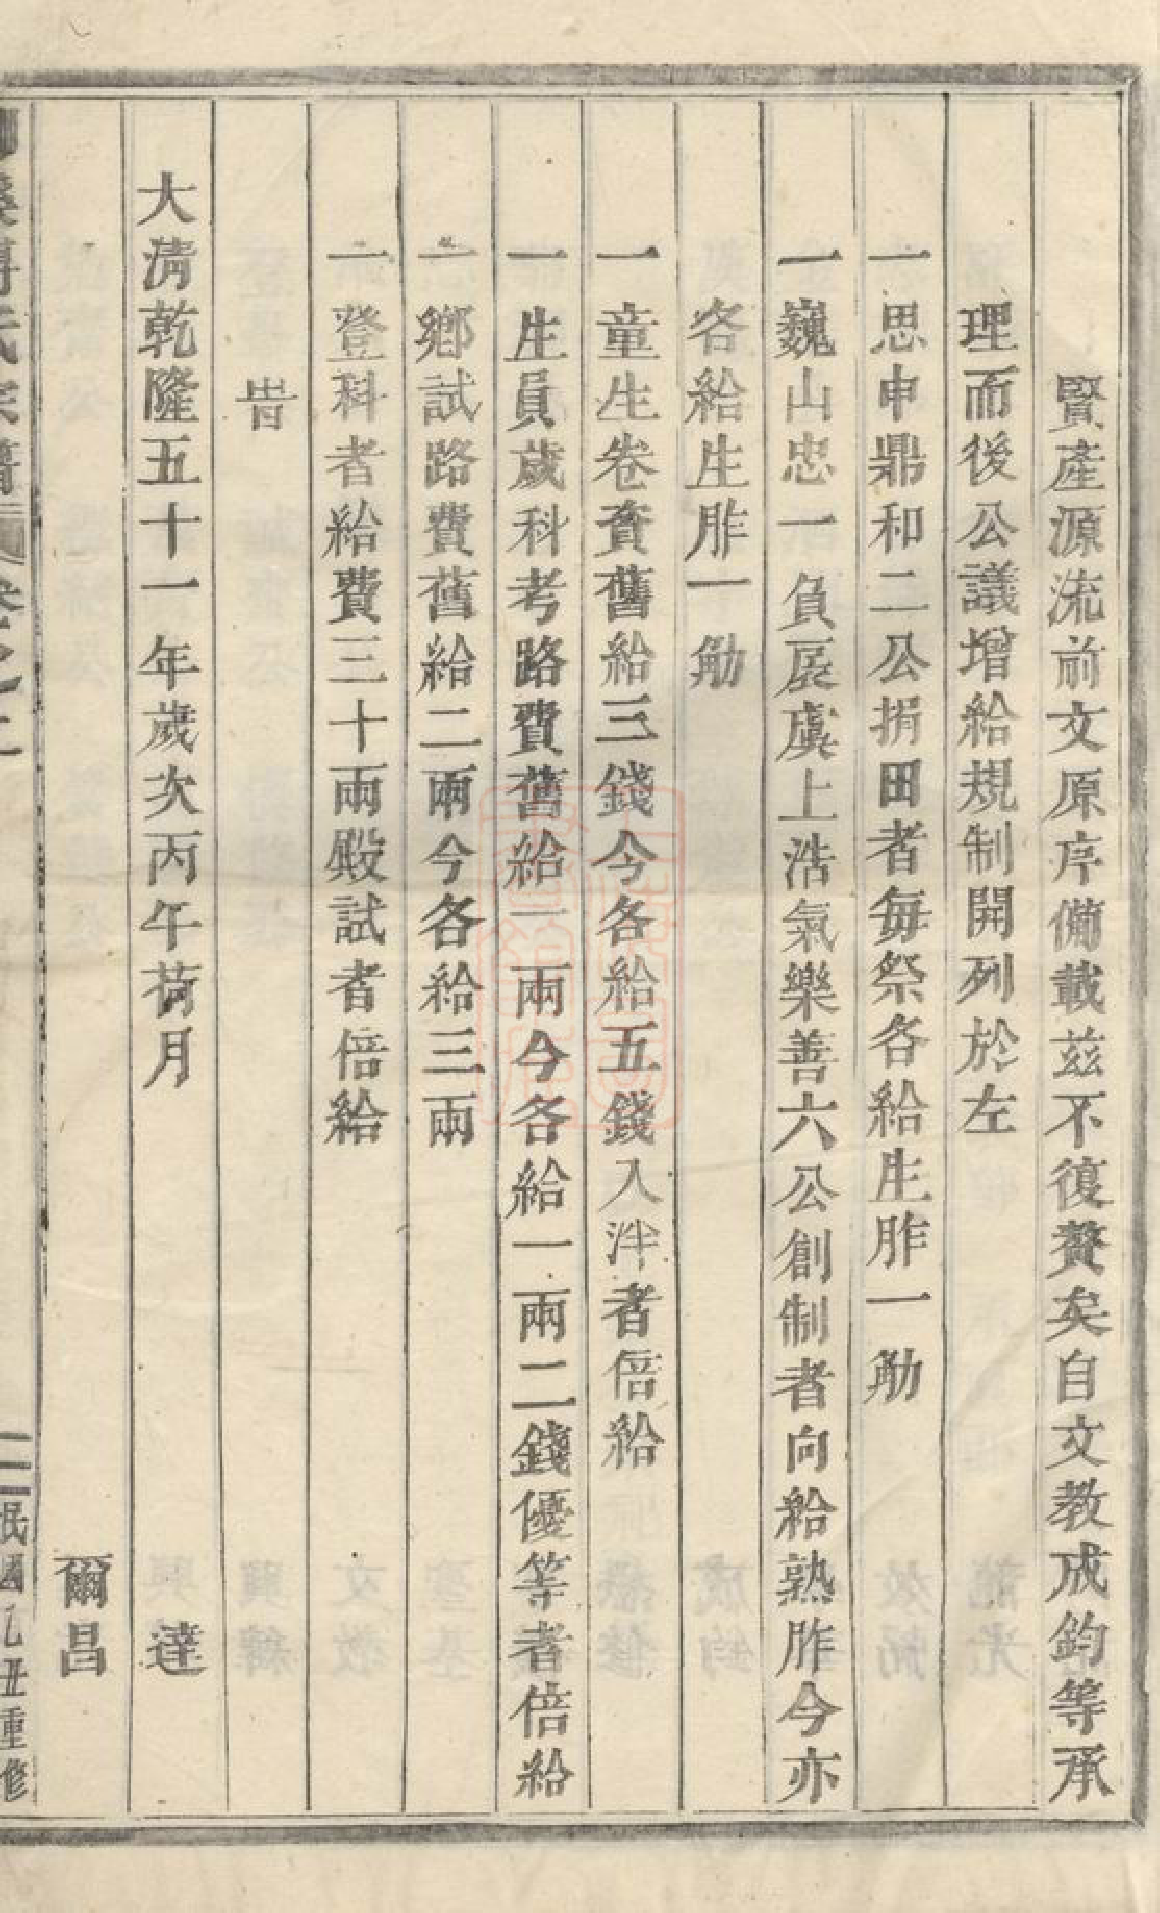 賢產源流前文原序備載茲不復贅矣自文教成鈞等承
理而後公議增給規制開列於左
一思申鼎和二公捐田者每祭各給生胙一觔
一巍山忠一負扆虞上浩氣樂善六公創制者向給熟胙今亦
各給生胙一觔
一童生卷資舊給三錢今各給五錢入泮者倍給
一生員歲科考路費舊給一兩今各給一兩二錢優等者倍給
一鄉試路費舊給二兩今各給三兩
一登科者給費三十兩殿試者倍給
旹
大清乾隆五十一年歲次丙午荷月 達
爾昌
氏宗譜 卷之二 民國乙丑重修